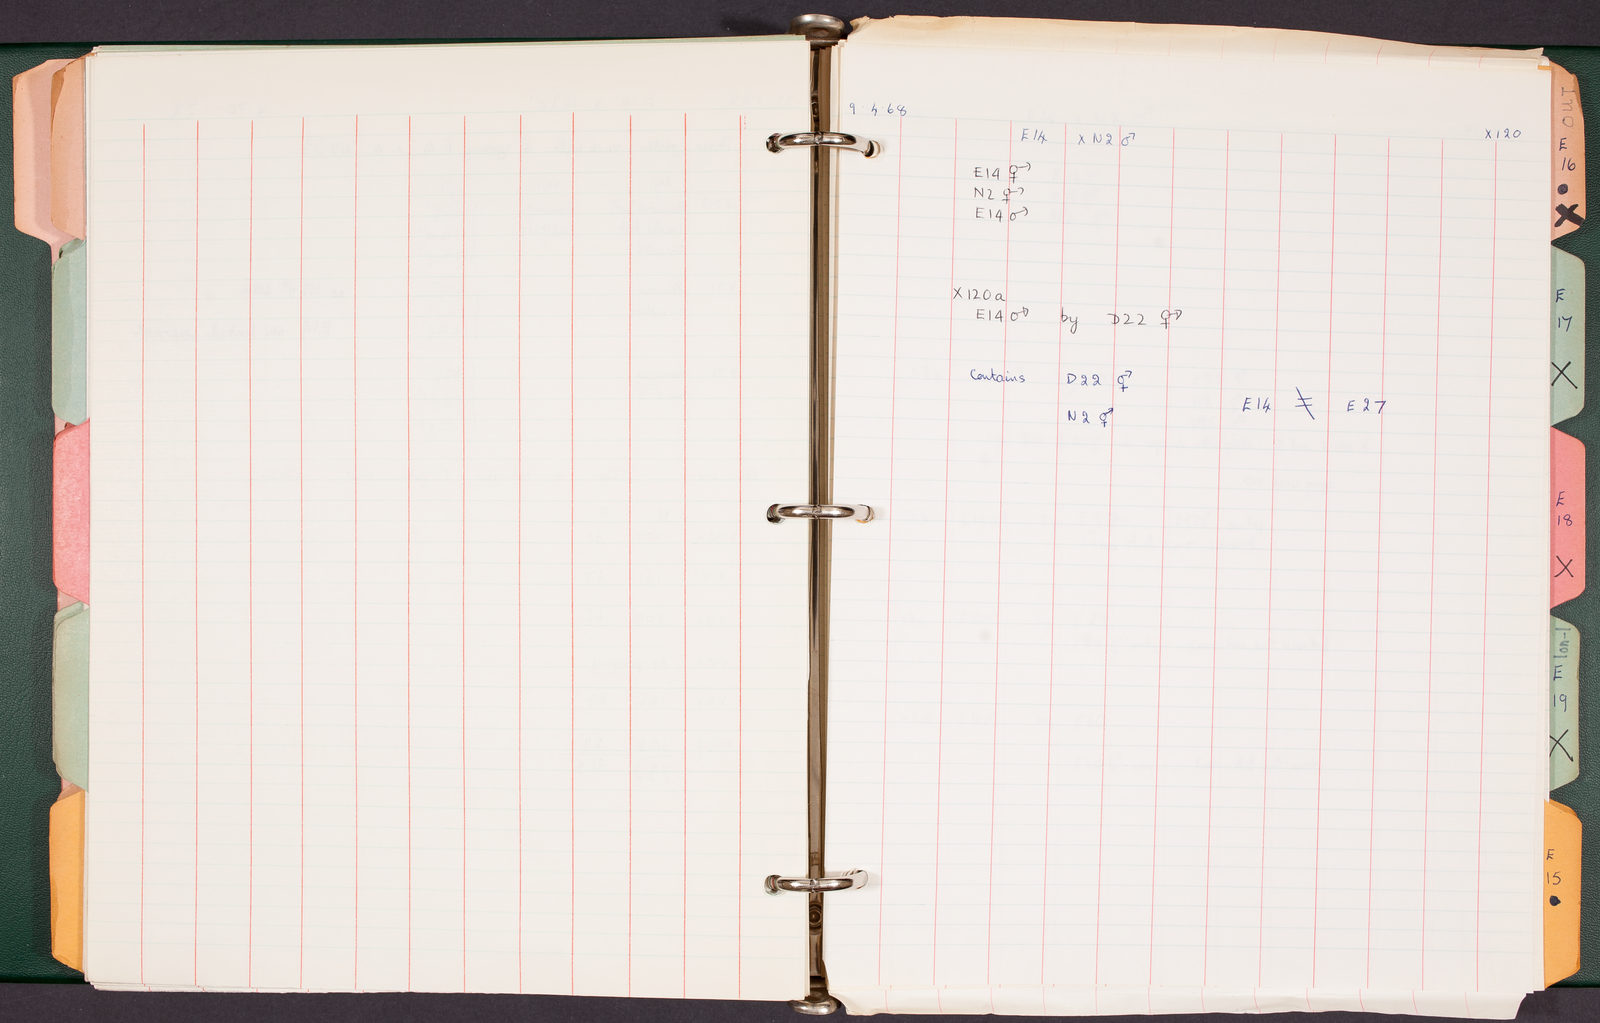 9.4.68
E14 x N2 ♂
X120
E14 ⚥
N2 ⚥
E14 ♂
X120a
E14 ♂ by D22 ⚥
Contains D22 ⚥
N2 ⚥
E14 ≠ E27
Ino
E
16
X
E
17
X
E
18
X
E
19
X
E
15